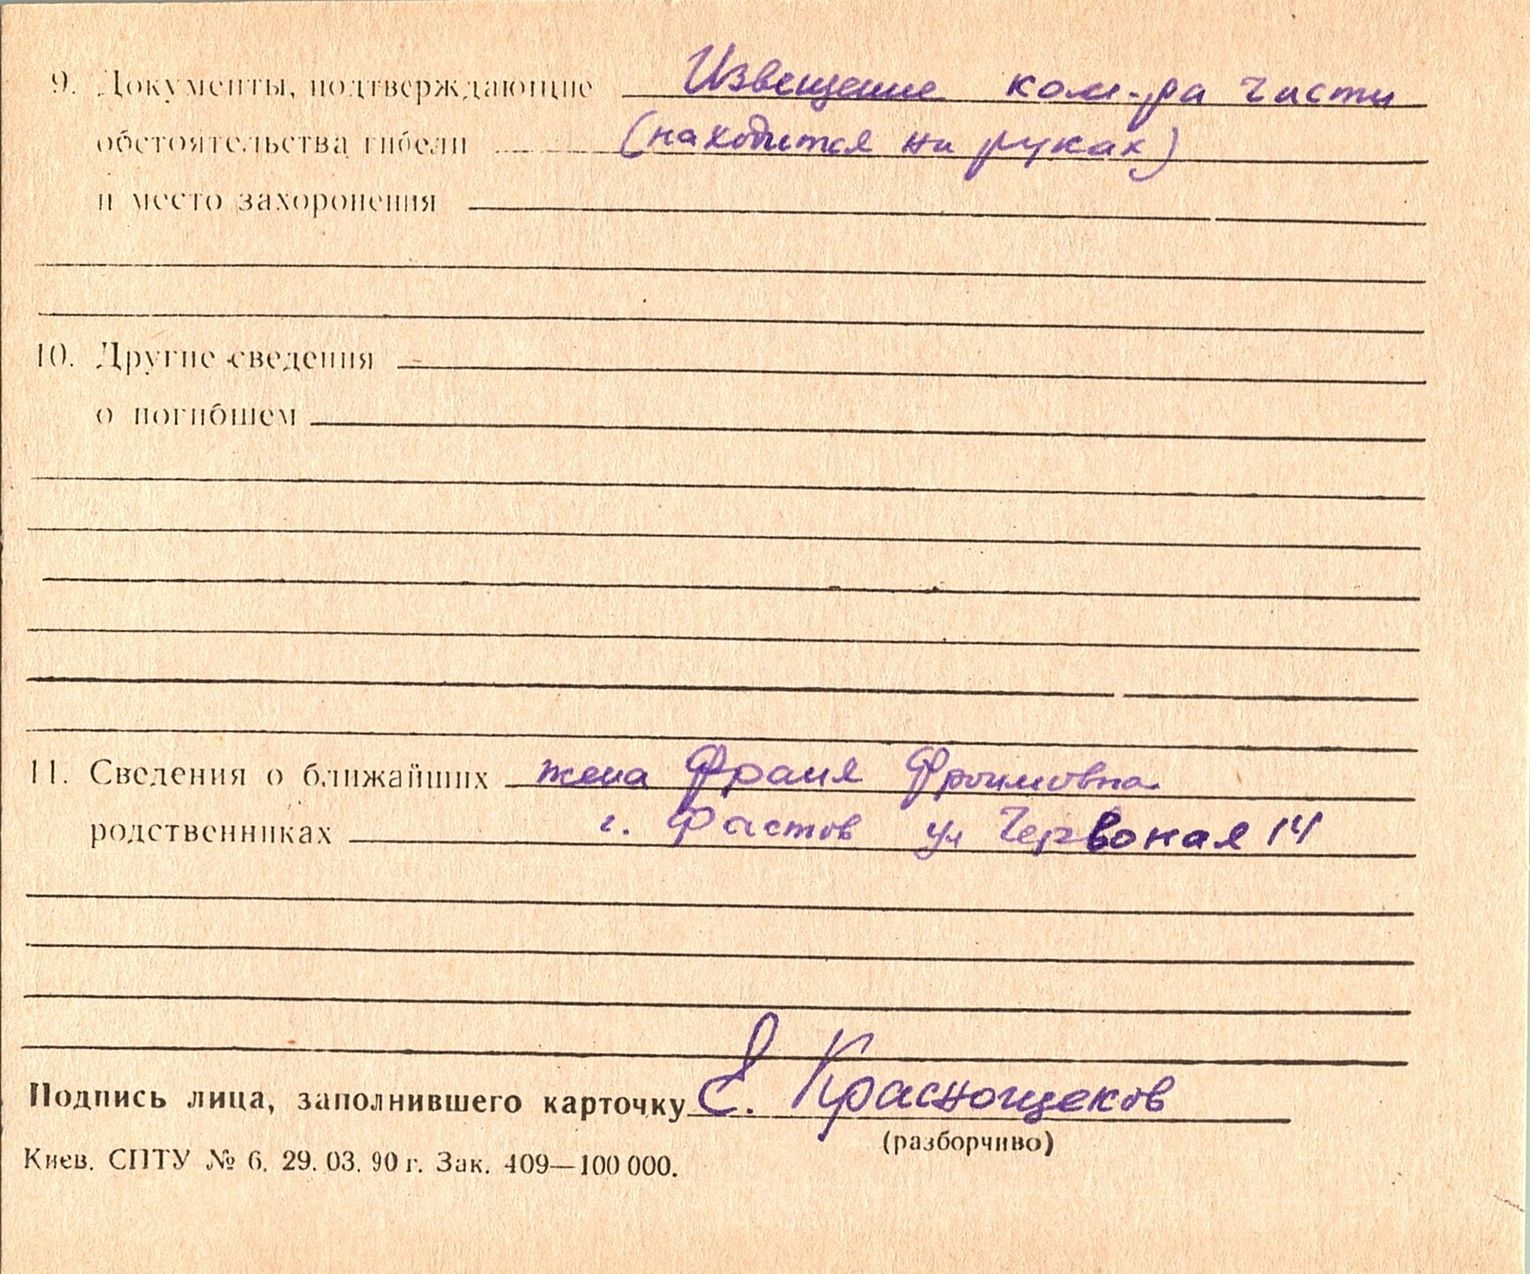 9. Документы, подтверждающие Извещение ком-ра части
обстоятельства гибели (находится на руках)
и место захоронения
10. Другие сведения
о погибшем
11. Сведения о ближайших жена Франя Фроимовна
родственниках г. Фастов ул Червоная 14
Подпись лица, заполнившего карточку Е. Краснощеков
(разборчиво)
Киев. СПТУ № 6. 29. 03. 90 г. Зак. 409—100 000.